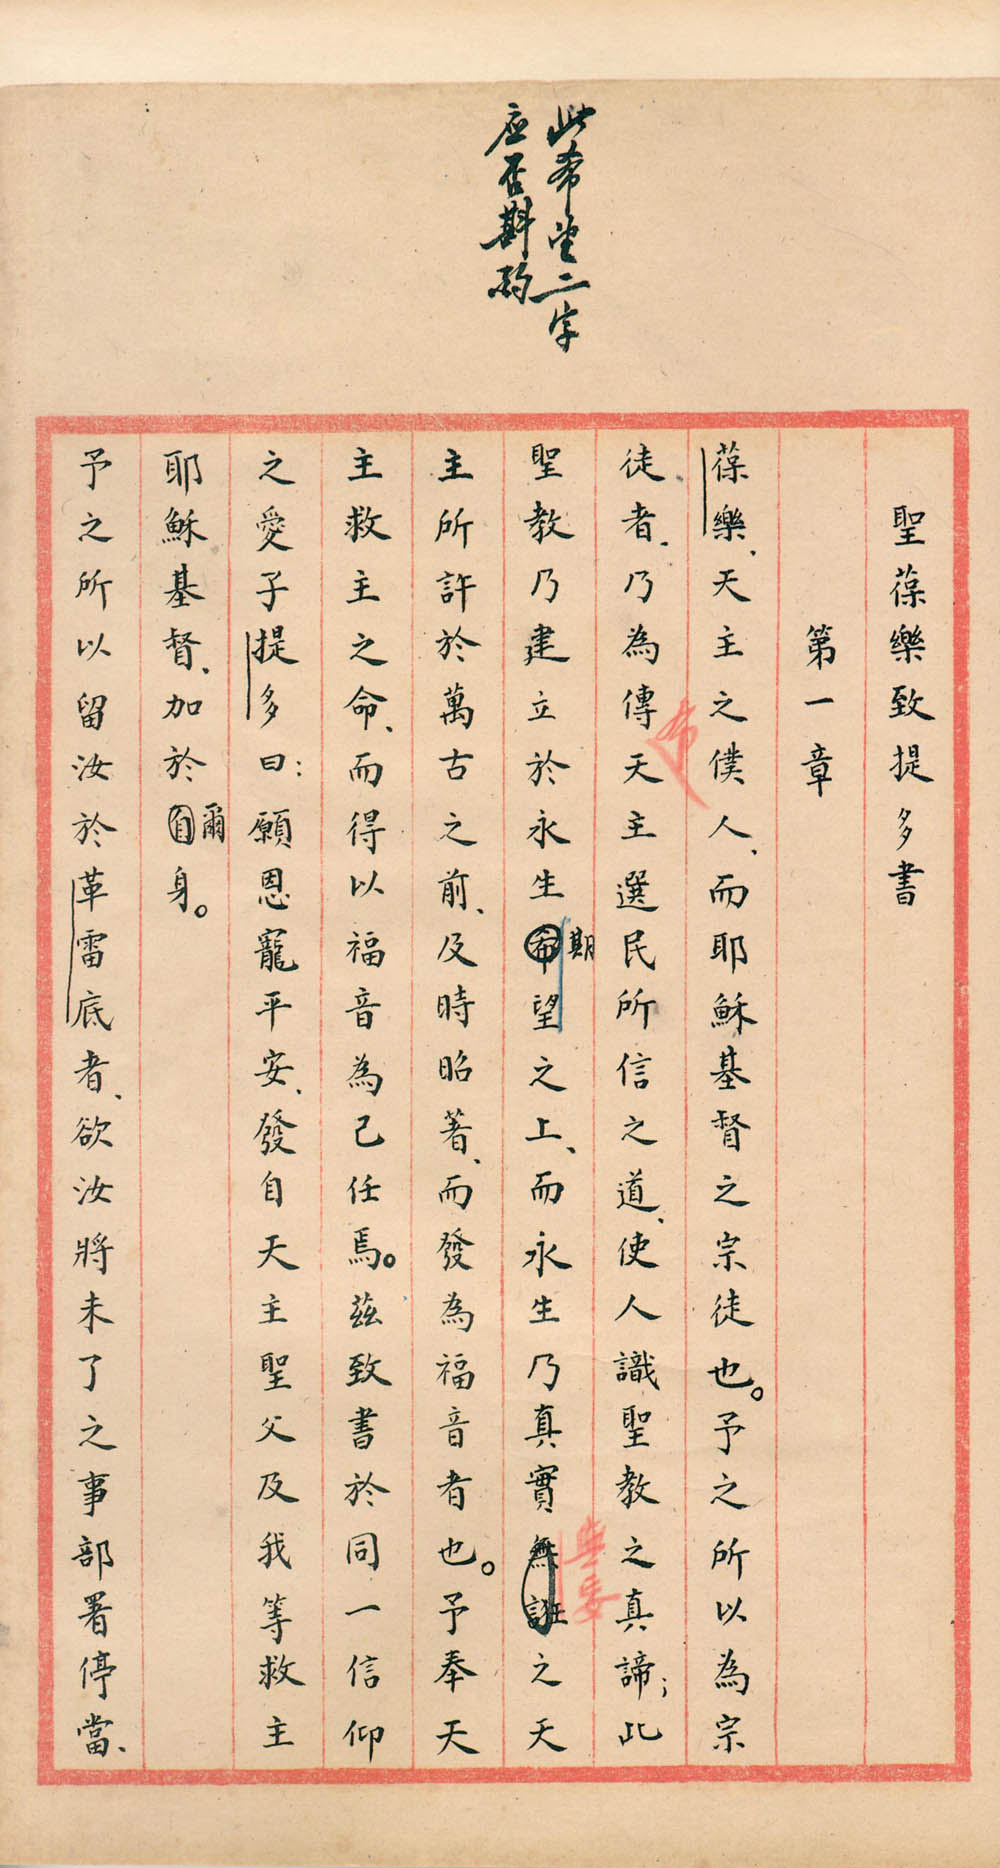 此希望二字
应否斟酌
聖葆樂致提多書
第一章
葆樂、天主之僕人、而耶穌基督之宗徒也。予之所以為宗
徒者、乃為傳天主選民所信之道、使人識聖教之真諦；此
希
聖教乃建立於永生希望之上、而永生乃真實無誑之天
期
無妄
主所許於萬古之前、及時昭著、而發為福音者也。予奉天
主救主之命、而得以福音為己任焉。茲致書於同一信仰
之愛子提多曰：願恩寵平安、發自天主聖父及我等救主
耶穌基督、加於自身。
爾
予之所以留汝於革雷底者、欲汝將未了之事部署停當、